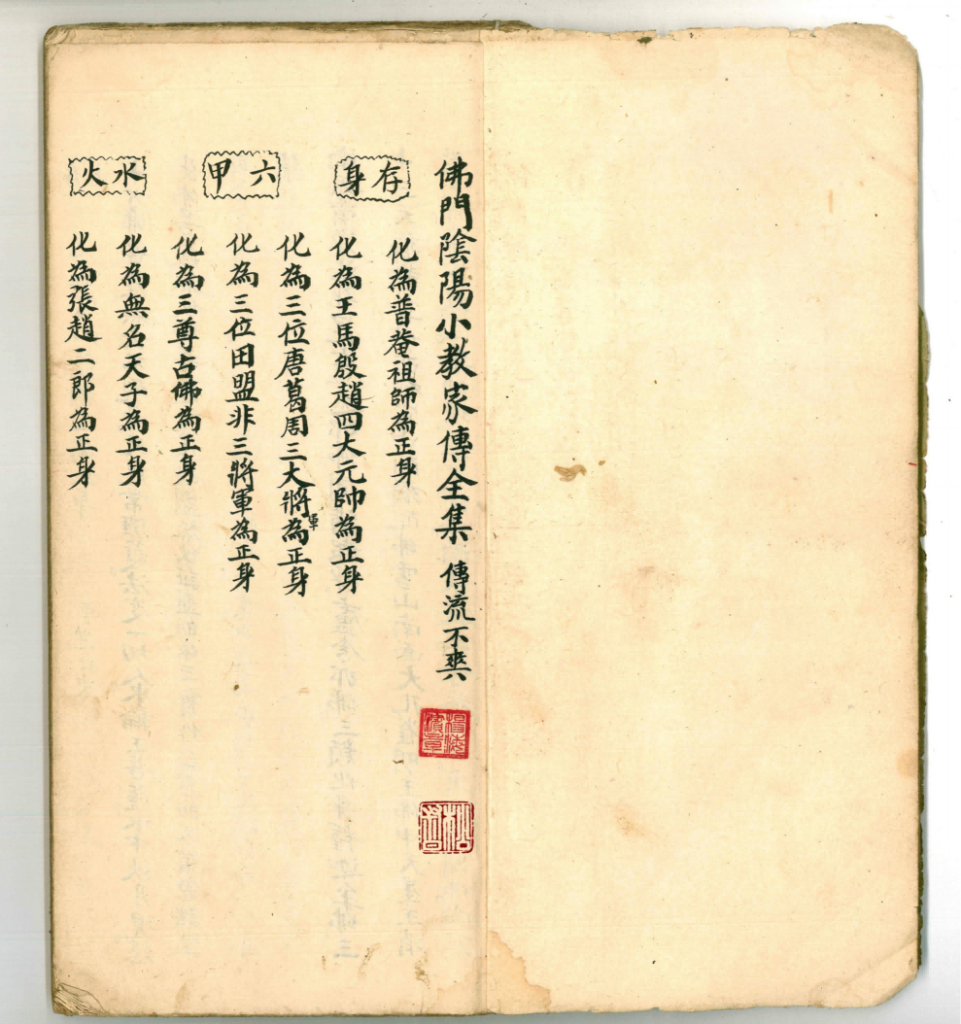 佛門陰陽小教家傳全集 傳流不爽
存身
化為普菴祖師為正身
化為王馬殷趙四大元帥為正身
六甲
化為三位唐葛周三大將軍為正身
化為三位田盟非三將軍為正身
化為三尊古佛為正身
水火
化為無名天子為正身
化為張趙二郎為正身